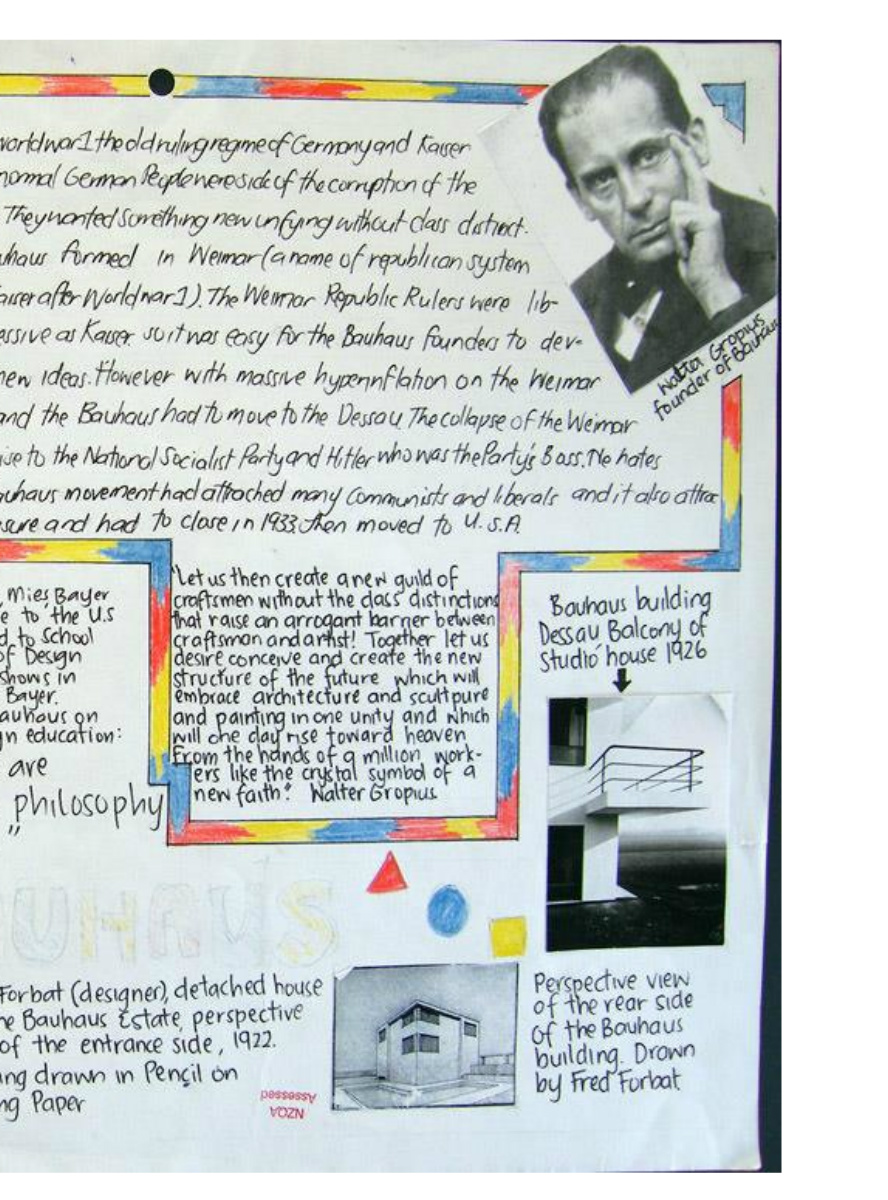 world war 1 the old ruling regime of Germany and Kaiser
normal German People were side of the corruption of the
They wanted something new unfying without class district.
uhaus formed in Weimar (a name of republican system
aiser after World war 1). The Weimar Republic Rulers were lib-
essive as Kaiser so it was easy for the Bauhaus founders to dev-
new ideas. However with massive hyperinflation on the Weimar
and the Bauhaus had to move to the Dessau The collapse of the Weimar
ise to the National Socialist Party and Hitler who was the Party's Boss. He hates
auhaus movement had attached many Communists and liberals and it also attrac
sure and had to close in 1933. then moved to U.S.A.
Walter Gropius
founder of Bauhaus
, Mies Bayer
e to the U.S
d to School
of Design
shows in
Bayer.
auhaus on
gn education:
are
philosophy
"
"Let us then create a new guild of
craftsmen without the class distinctions
that raise an arrogant barrier between
craftsman and artist! Together let us
desire conceive and create the new
structure of the future which will
embrace architecture and scultpure
and painting in one unity and which
will one day rise toward heaven
from the hands of a million work-
ers like the crystal symbol of a
new faith." Walter Gropius
Bauhaus building
Dessau Balcony of
Studio house 1926
UHAUS
Forbat (designer), detached house
he Bauhaus Estate, perspective
of the entrance side, 1922.
ing drawn in Pencil on
ng Paper
Perspective view
of the rear side
of the Bauhaus
building. Drawn
by Fred Forbat
NZQA
Assessed